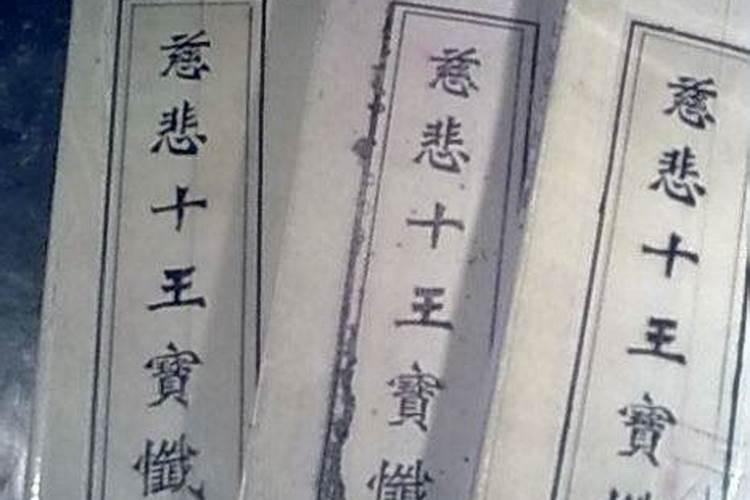 慈悲十王寶懺
慈悲十王寶懺
慈悲十王寶